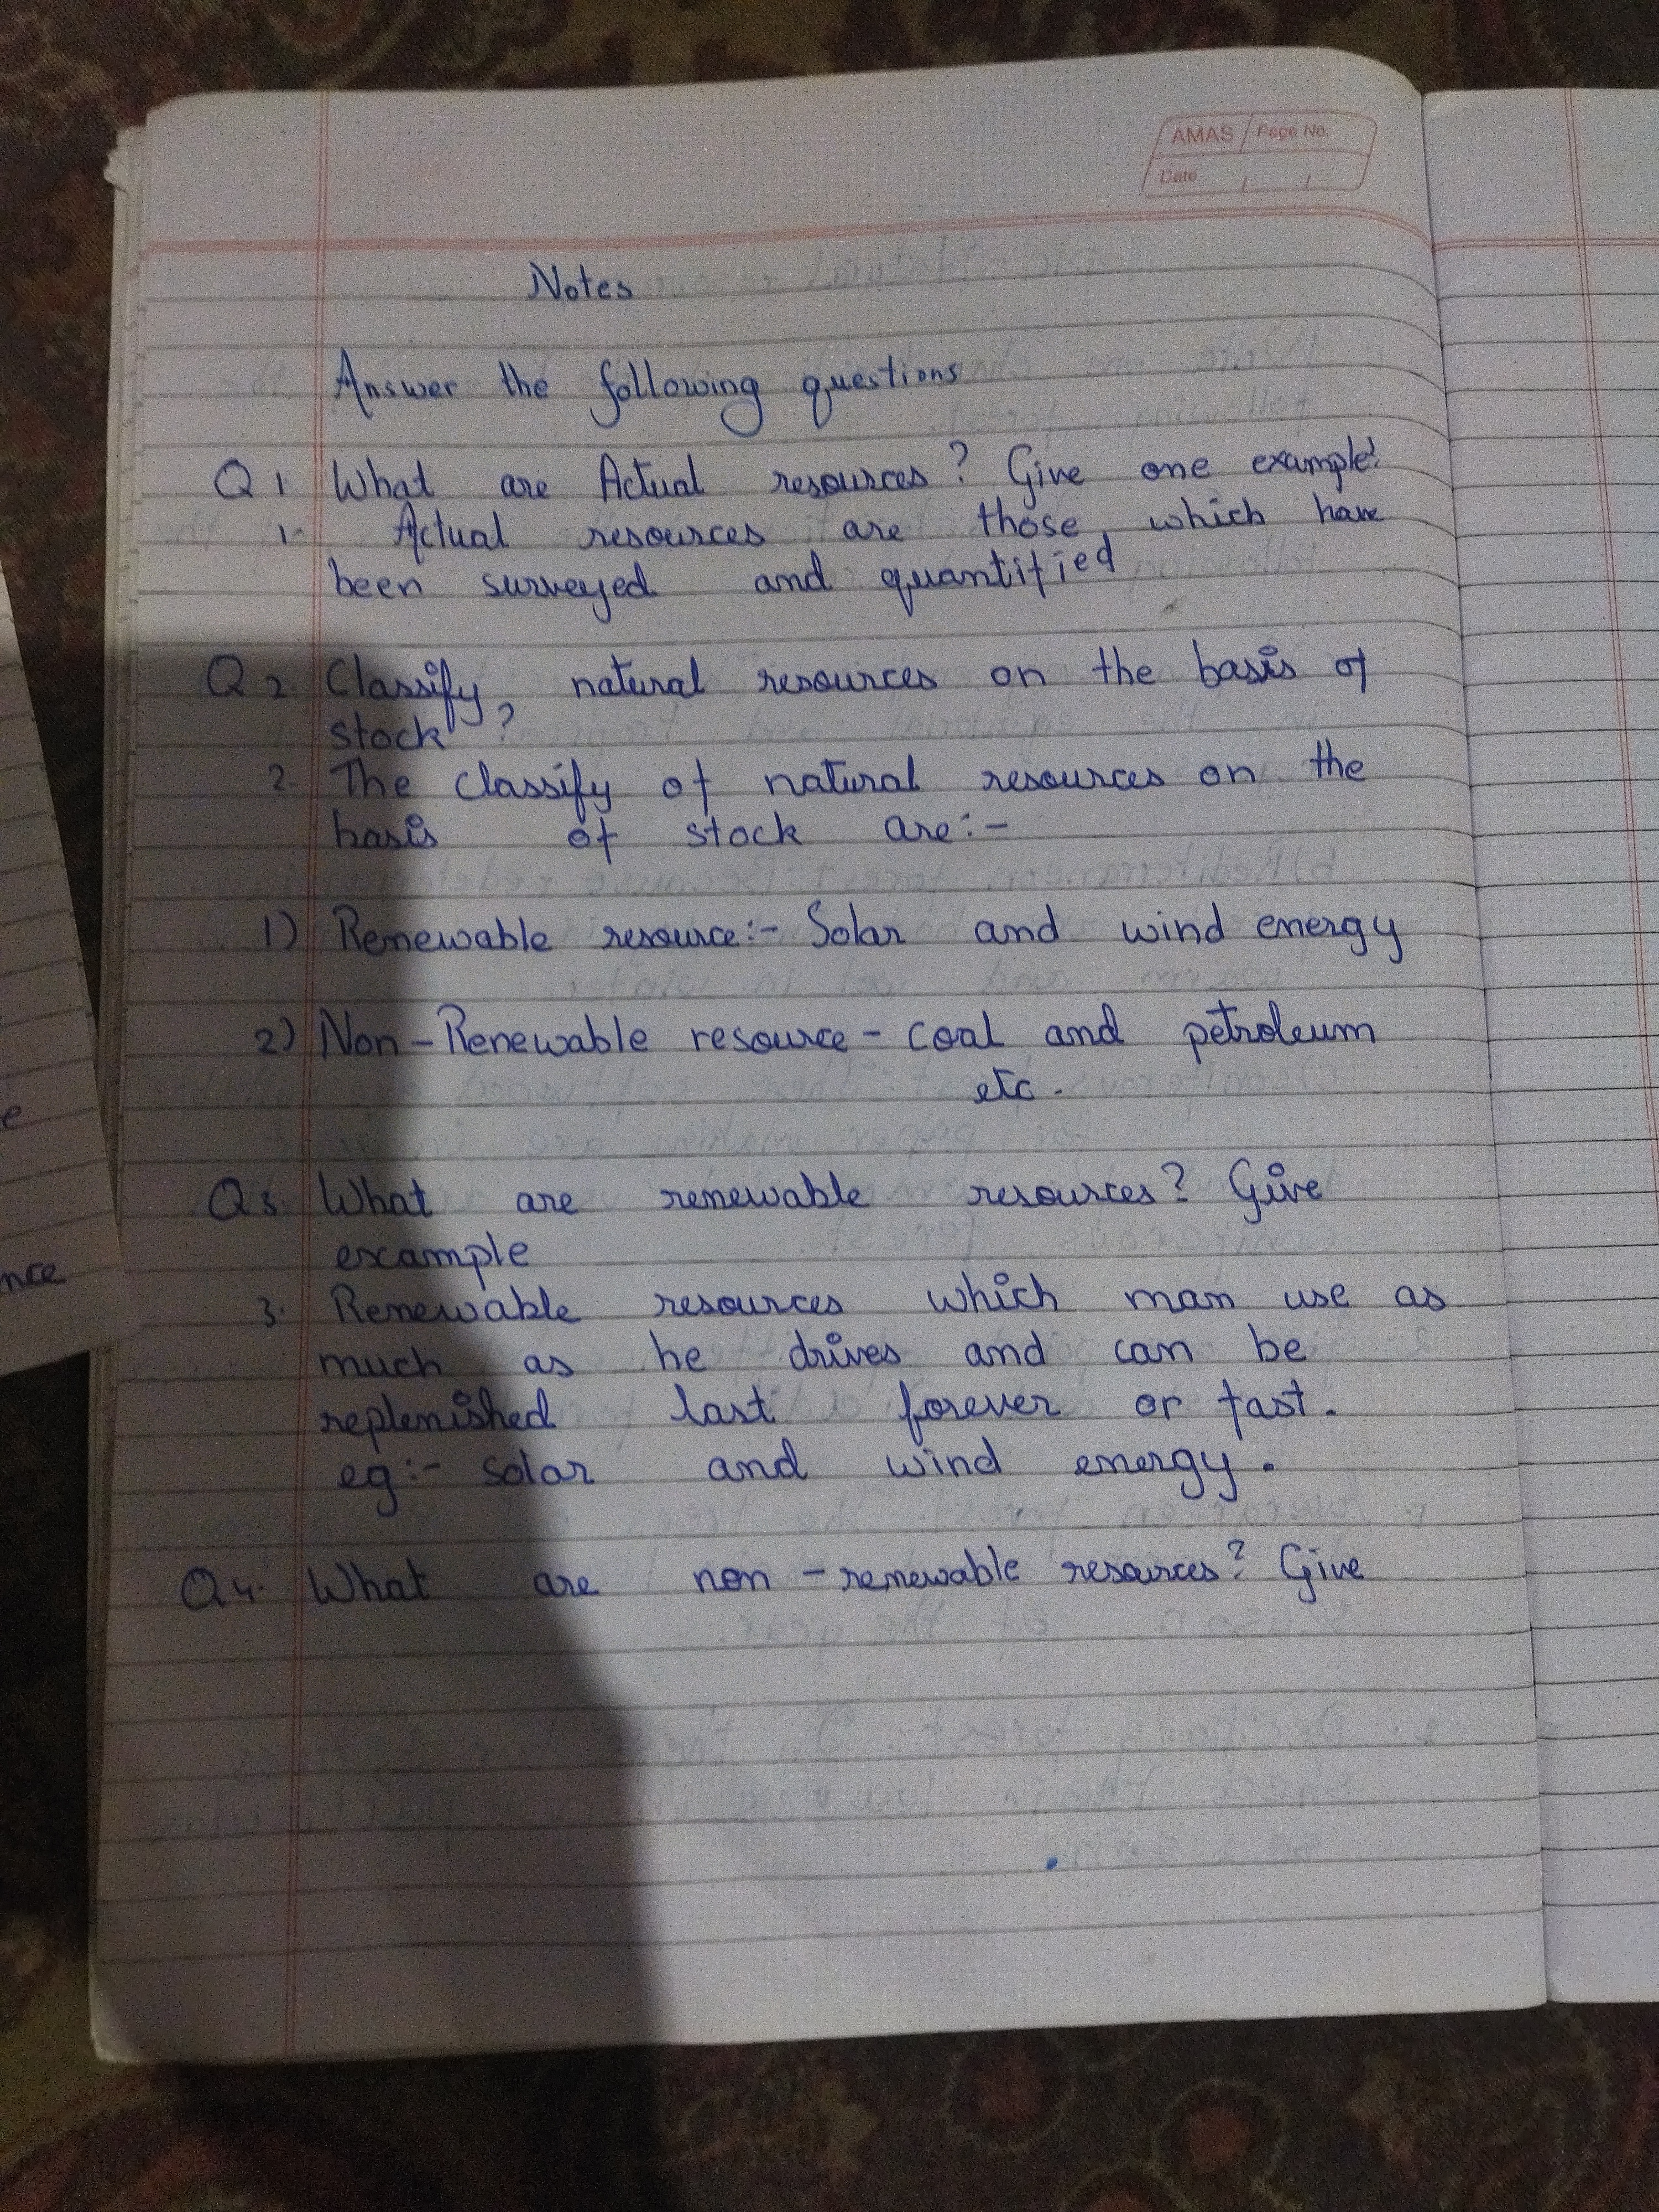 AMAS Page No.
Date / /
Notes
Answer the following questions
Q 1. What are Actual resources? Give one example?
1. Actual resources are those, which have
been surveyed and quantified
Q 2 Classify natural resources on the basis of
stock ?
2. The classify of natural resources on the
basis of stock are:-
1) Renewable resource:- Solar and wind energy
2) Non-Renewable resource - coal and petroleum
etc.
Q3. What are renewable resources? Give
example
3. Renewable resources which man use as
much as he drives and can be
replenished last forever or fast.
eg:- solar and wind energy.
Q4. What are non-renewable resources? Give
e
nce